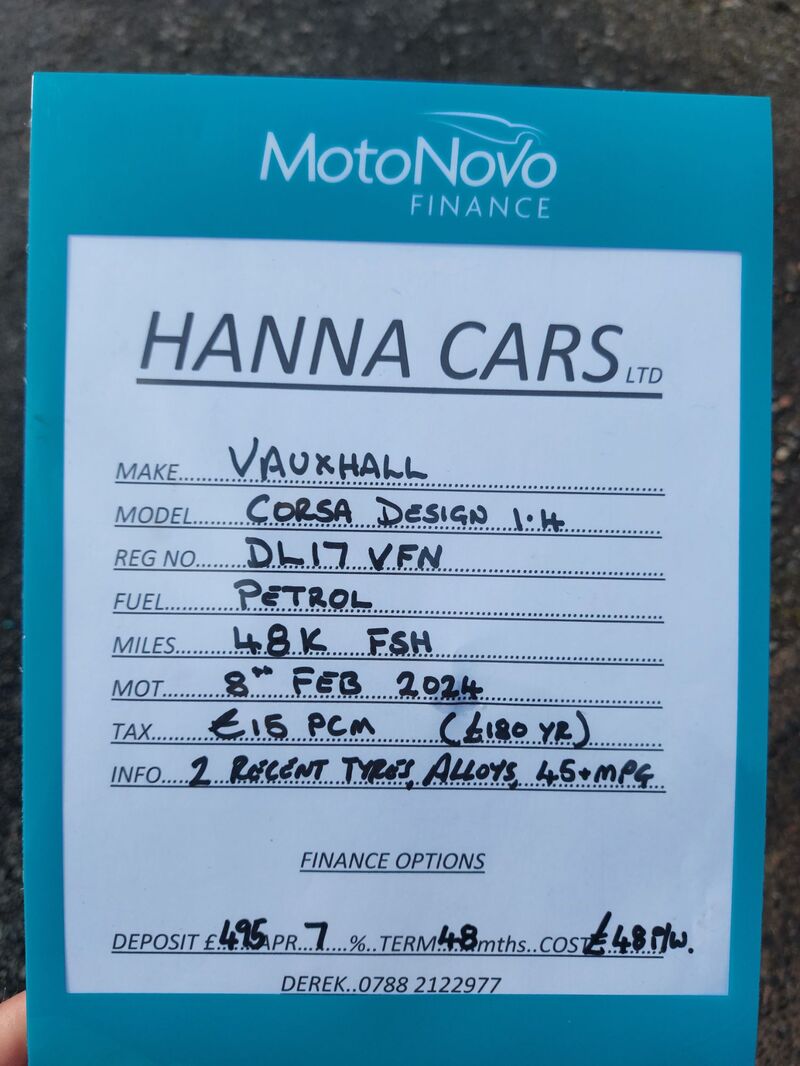 MotoNovo
FINANCE
HANNA CARS LTD
MAKE...... VAUXHALL
MODEL.... CORSA DESIGN 1.4
REG NO.... DL17 VFN
FUEL...... PETROL
MILES..... 48K FSH
MOT...... 8TH FEB 2024
TAX...... £15 PCM (£180 YR)
INFO.... 2 RECENT TYRES, ALLOYS, 45+MPG
FINANCE OPTIONS
DEPOSIT £ 495 APR..7...%..TERM 48 mths..COST £48 P/W.
DEREK..0788 2122977